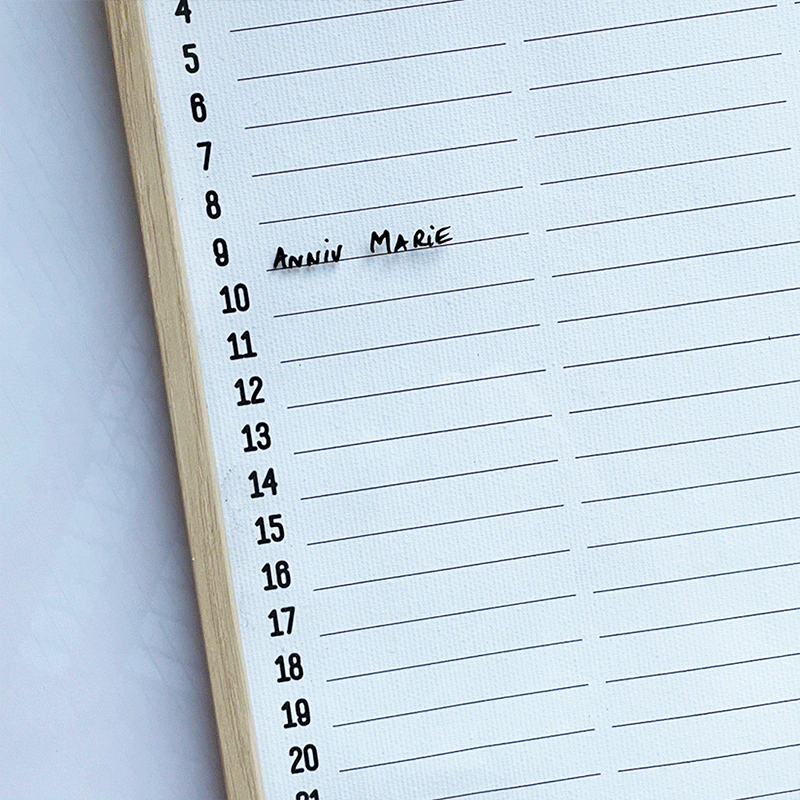 4
5
6
7
8
9 ANNIV MARiE
10
11
12
13
14
15
16
17
18
19
20
21